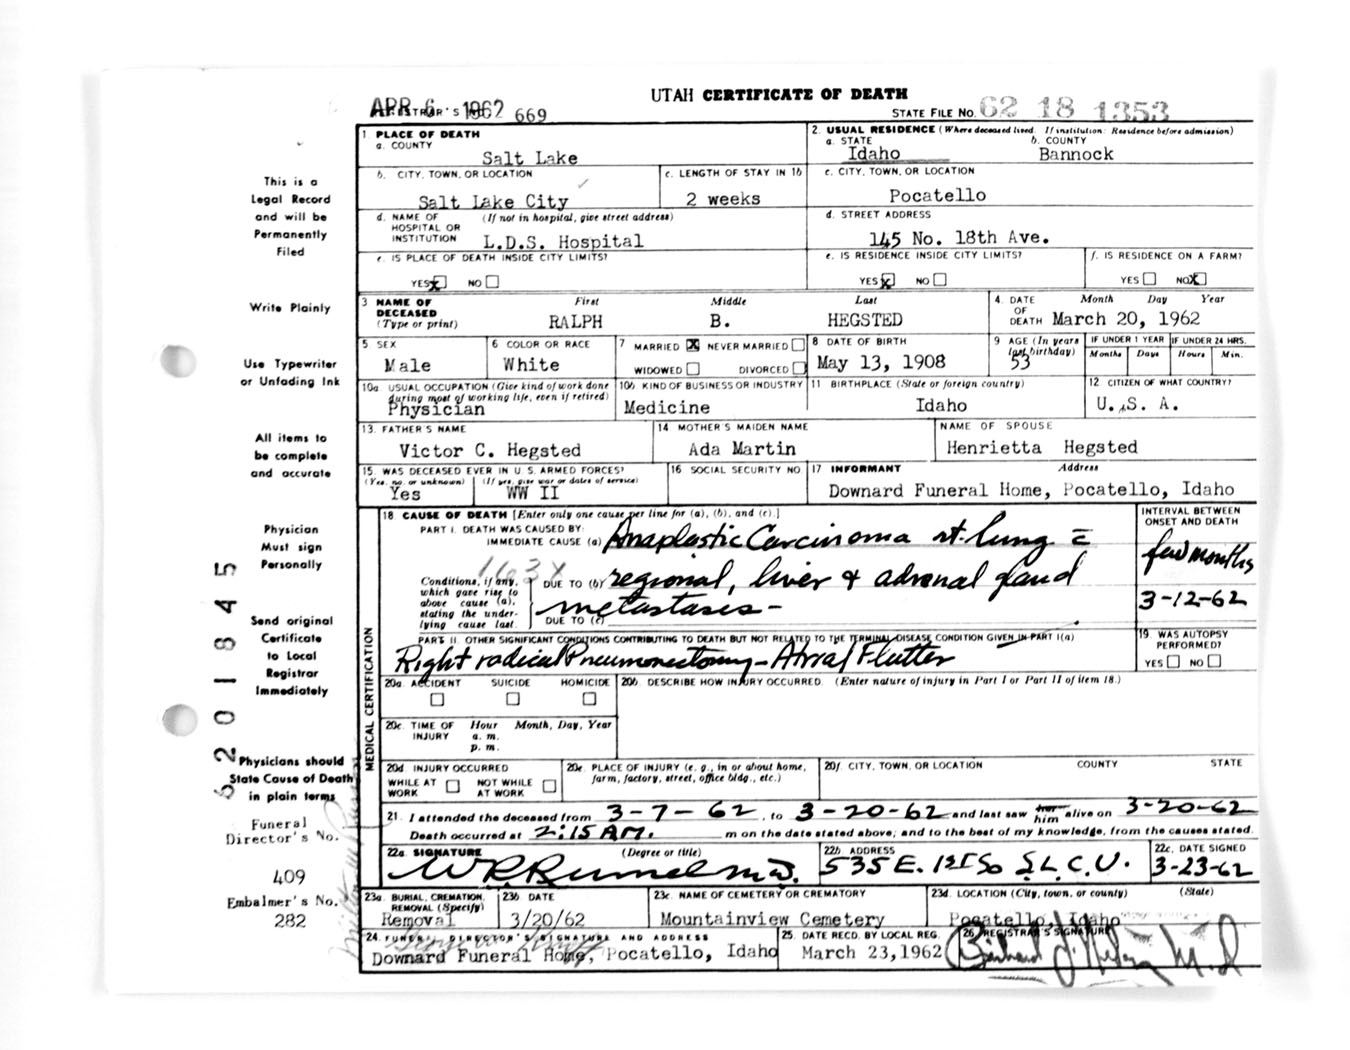 UTAH CERTIFICATE OF DEATH
APR 6 1962 669
STATE FILE NO. 62 18 1353
1. PLACE OF DEATH
a. COUNTY
Salt Lake
2. USUAL RESIDENCE (Where deceased lived. If institution: Residence before admission)
a. STATE b. COUNTY
Idaho Bannock
b. CITY, TOWN, OR LOCATION
Salt Lake City
c. LENGTH OF STAY IN 1b
2 weeks
c. CITY, TOWN, OR LOCATION
Pocatello
d. NAME OF HOSPITAL OR INSTITUTION (If not in hospital, give street address)
L.D.S. Hospital
d. STREET ADDRESS
145 No. 18th Ave.
e. IS PLACE OF DEATH INSIDE CITY LIMITS?
YES x NO
e. IS RESIDENCE INSIDE CITY LIMITS?
YES x NO
f. IS RESIDENCE ON A FARM?
YES NO x
3 NAME OF DECEASED (Type or print) First Middle Last
RALPH B. HEGSTED
4. DATE OF DEATH Month Day Year
March 20, 1962
5 SEX
Male
6 COLOR OR RACE
White
7 MARRIED X NEVER MARRIED
WIDOWED DIVORCED
8 DATE OF BIRTH
May 13, 1908
9 AGE (In years last birthday)
53
IF UNDER 1 YEAR IF UNDER 24 HRS.
Months Days Hours Min.
10a USUAL OCCUPATION (Give kind of work done during most of working life, even if retired)
Physician
10b KIND OF BUSINESS OR INDUSTRY
Medicine
11 BIRTHPLACE (State or foreign country)
Idaho
12 CITIZEN OF WHAT COUNTRY?
U. S. A.
13. FATHER'S NAME
Victor C. Hegsted
14 MOTHER'S MAIDEN NAME
Ada Martin
NAME OF SPOUSE
Henrietta Hegsted
15. WAS DECEASED EVER IN U.S. ARMED FORCES?
(Yes, no, or unknown) (If yes, give war or dates of service)
Yes WW II
16 SOCIAL SECURITY NO
17 INFORMANT Address
Downard Funeral Home, Pocatello, Idaho
18 CAUSE OF DEATH [Enter only one cause per line for (a), (b), and (c).]
INTERVAL BETWEEN ONSET AND DEATH
PART I. DEATH WAS CAUSED BY:
IMMEDIATE CAUSE (a) Anaplastic Carcinoma rt. lung c̄
few months
163X
Conditions, if any, which gave rise to above cause (a), stating the underlying cause last.
DUE TO (b) regional, liver & adrenal gland
metastases -
3-12-62
DUE TO (c)
PART II. OTHER SIGNIFICANT CONDITIONS CONTRIBUTING TO DEATH BUT NOT RELATED TO THE TERMINAL DISEASE CONDITION GIVEN IN PART I(a)
Right radical Pneumonectomy - Atrial Flutter
19. WAS AUTOPSY PERFORMED?
YES NO
20a. ACCIDENT SUICIDE HOMICIDE
20b. DESCRIBE HOW INJURY OCCURRED. (Enter nature of injury in Part I or Part II of item 18.)
20c. TIME OF INJURY Hour Month, Day, Year
a. m.
p. m.
20d INJURY OCCURRED
WHILE AT WORK NOT WHILE AT WORK
20e. PLACE OF INJURY (e. g., in or about home, farm, factory, street, office bldg., etc.)
20f. CITY, TOWN, OR LOCATION COUNTY STATE
21. I attended the deceased from 3-7-62, to 3-20-62 and last saw her him alive on 3-20-62
Death occurred at 2:15 AM. m on the date stated above; and to the best of my knowledge, from the causes stated.
22a. SIGNATURE (Degree or title)
W R Rumel M.D.
22b ADDRESS
535 E. 1st So S.L.C.U.
22c. DATE SIGNED
3-23-62
23a. BURIAL, CREMATION, REMOVAL (Specify)
Removal
23b DATE
3/20/62
23c. NAME OF CEMETERY OR CREMATORY
Mountainview Cemetery
23d. LOCATION (City, town, or county) (State)
Pocatello, Idaho
24. FUNERAL DIRECTOR'S SIGNATURE AND ADDRESS
Downard Funeral Home, Pocatello, Idaho
25. DATE RECD. BY LOCAL REG.
March 23, 1962
26. REGISTRAR'S SIGNATURE
MEDICAL CERTIFICATION
This is a
Legal Record
and will be
Permanently
Filed
Write Plainly
Use Typewriter
or Unfading Ink
All items to
be complete
and accurate
Physician
Must sign
Personally
Send original
Certificate
to Local
Registrar
Immediately
Physicians should
State Cause of Death
in plain terms
Funeral
Director's No.
409
Embalmer's No.
282
6201845